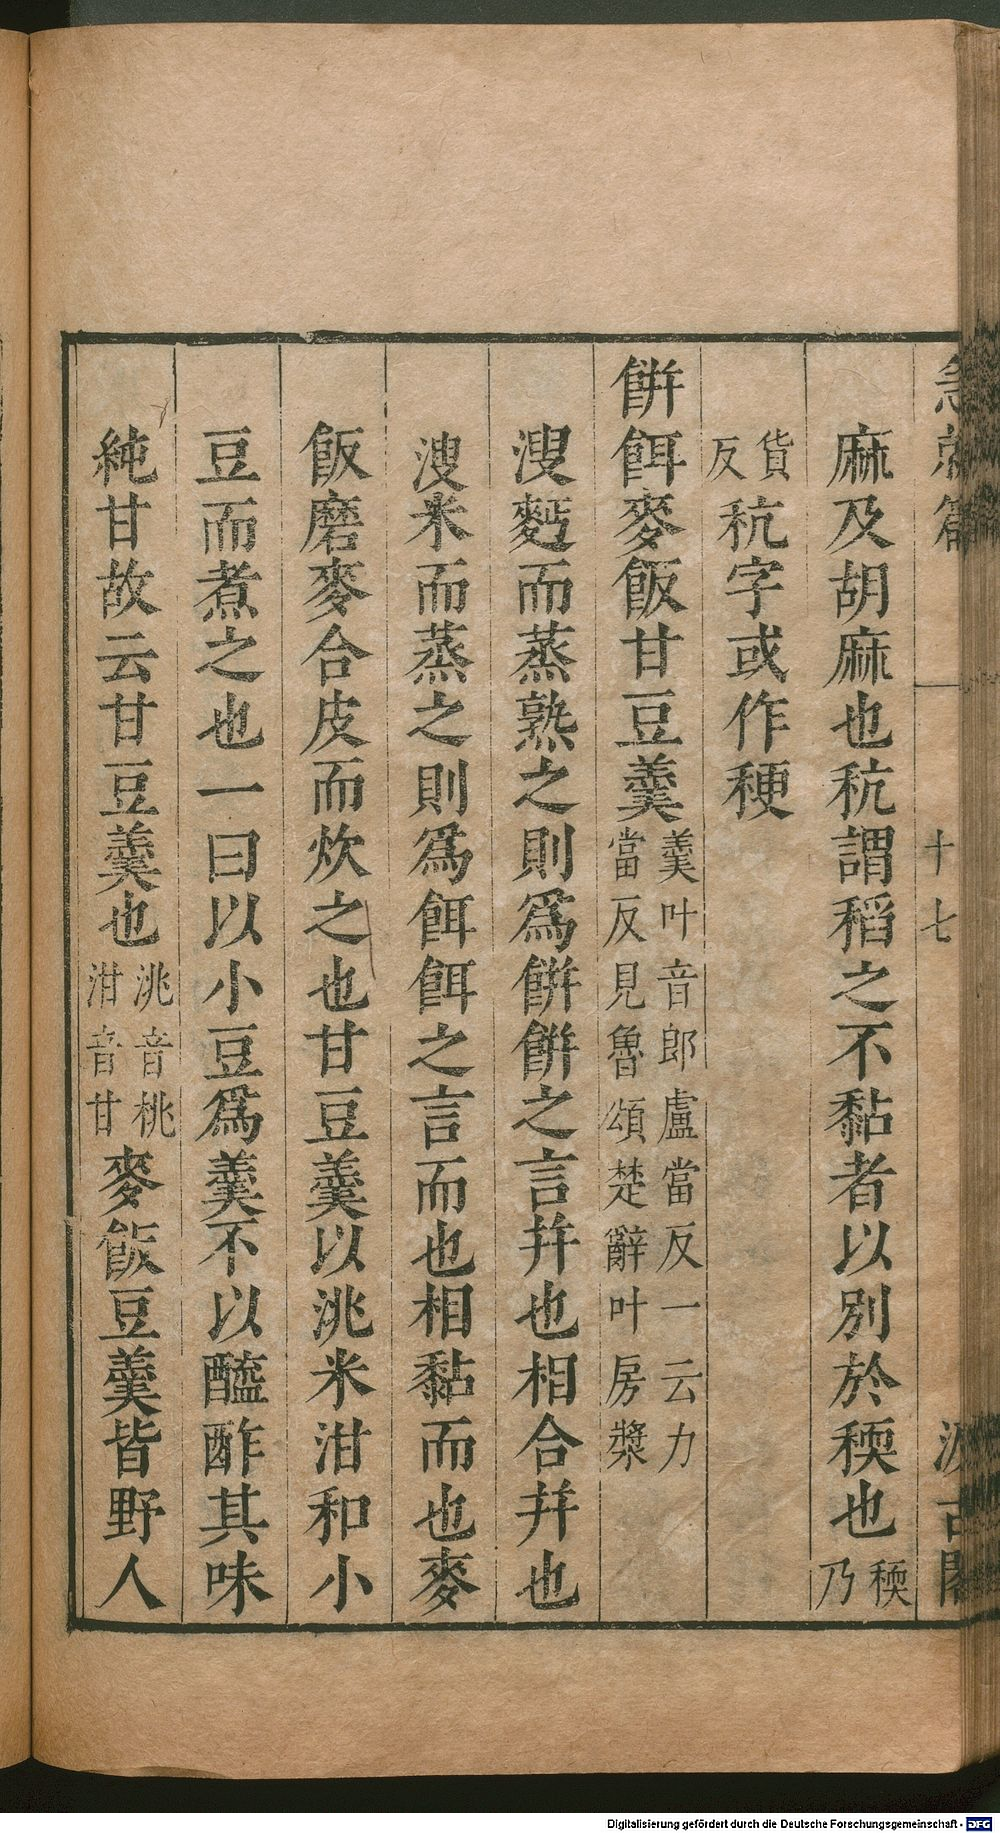 急就篇 十七 汲古閣
麻及胡麻也秔謂稻之不黏者以別於稬也稬乃
貨反秔字或作稉
餠餌麥飯甘豆羹羹叶音郎盧當反一云力當反見魯頌楚辭叶房漿
溲麪而蒸熟之則爲餠餠之言幷也相合幷也
溲米而蒸之則爲餌餌之言而也相黏而也麥
飯磨麥合皮而炊之也甘豆羹以洮米泔和小
豆而煮之也一曰以小豆爲羹不以醯酢其味
純甘故云甘豆羹也洮音桃泔音甘麥飯豆羹皆野人
Digitalisierung gefördert durch die Deutsche Forschungsgemeinschaft - DFG